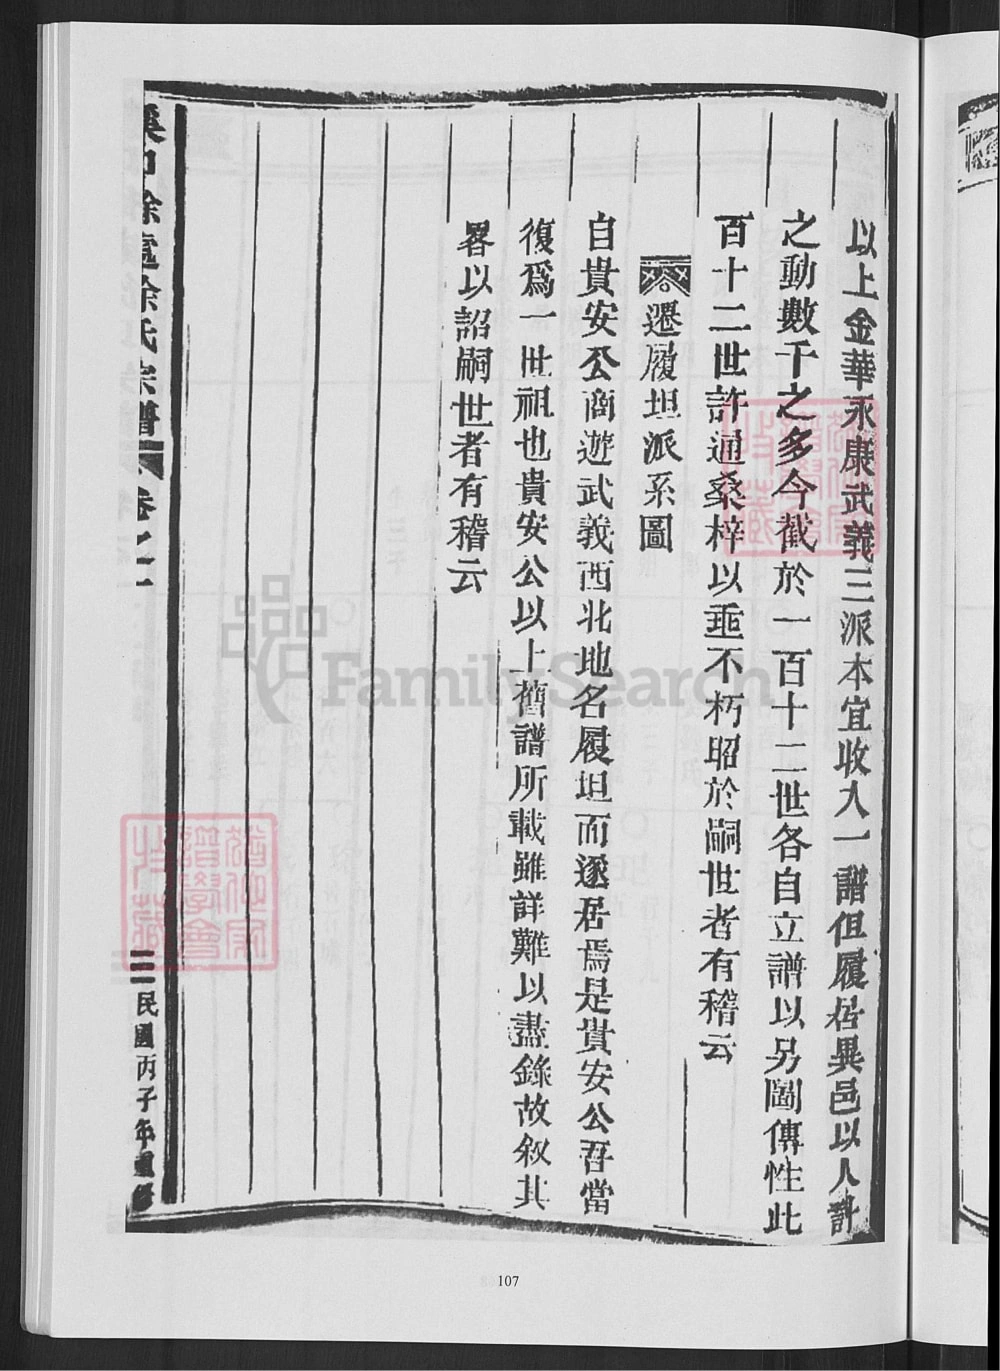 以上金華永康武義三派本宜收入一譜但履居異邑以人計
之動數千之多今截於一百十二世各自立譜以另圖傳性此
百十二世許通桑梓以垂不朽昭於嗣世者有稽云
遷履坦派系圖
自貴安公商遊武義西北地名履坦而遂居焉是貴安公吾當
復爲一世祖也貴安公以上舊譜所載雖詳難以盡錄故叙其
畧以詔嗣世者有稽云
徐氏宗譜 卷之一
民國丙子年重修
107
FamilySearch